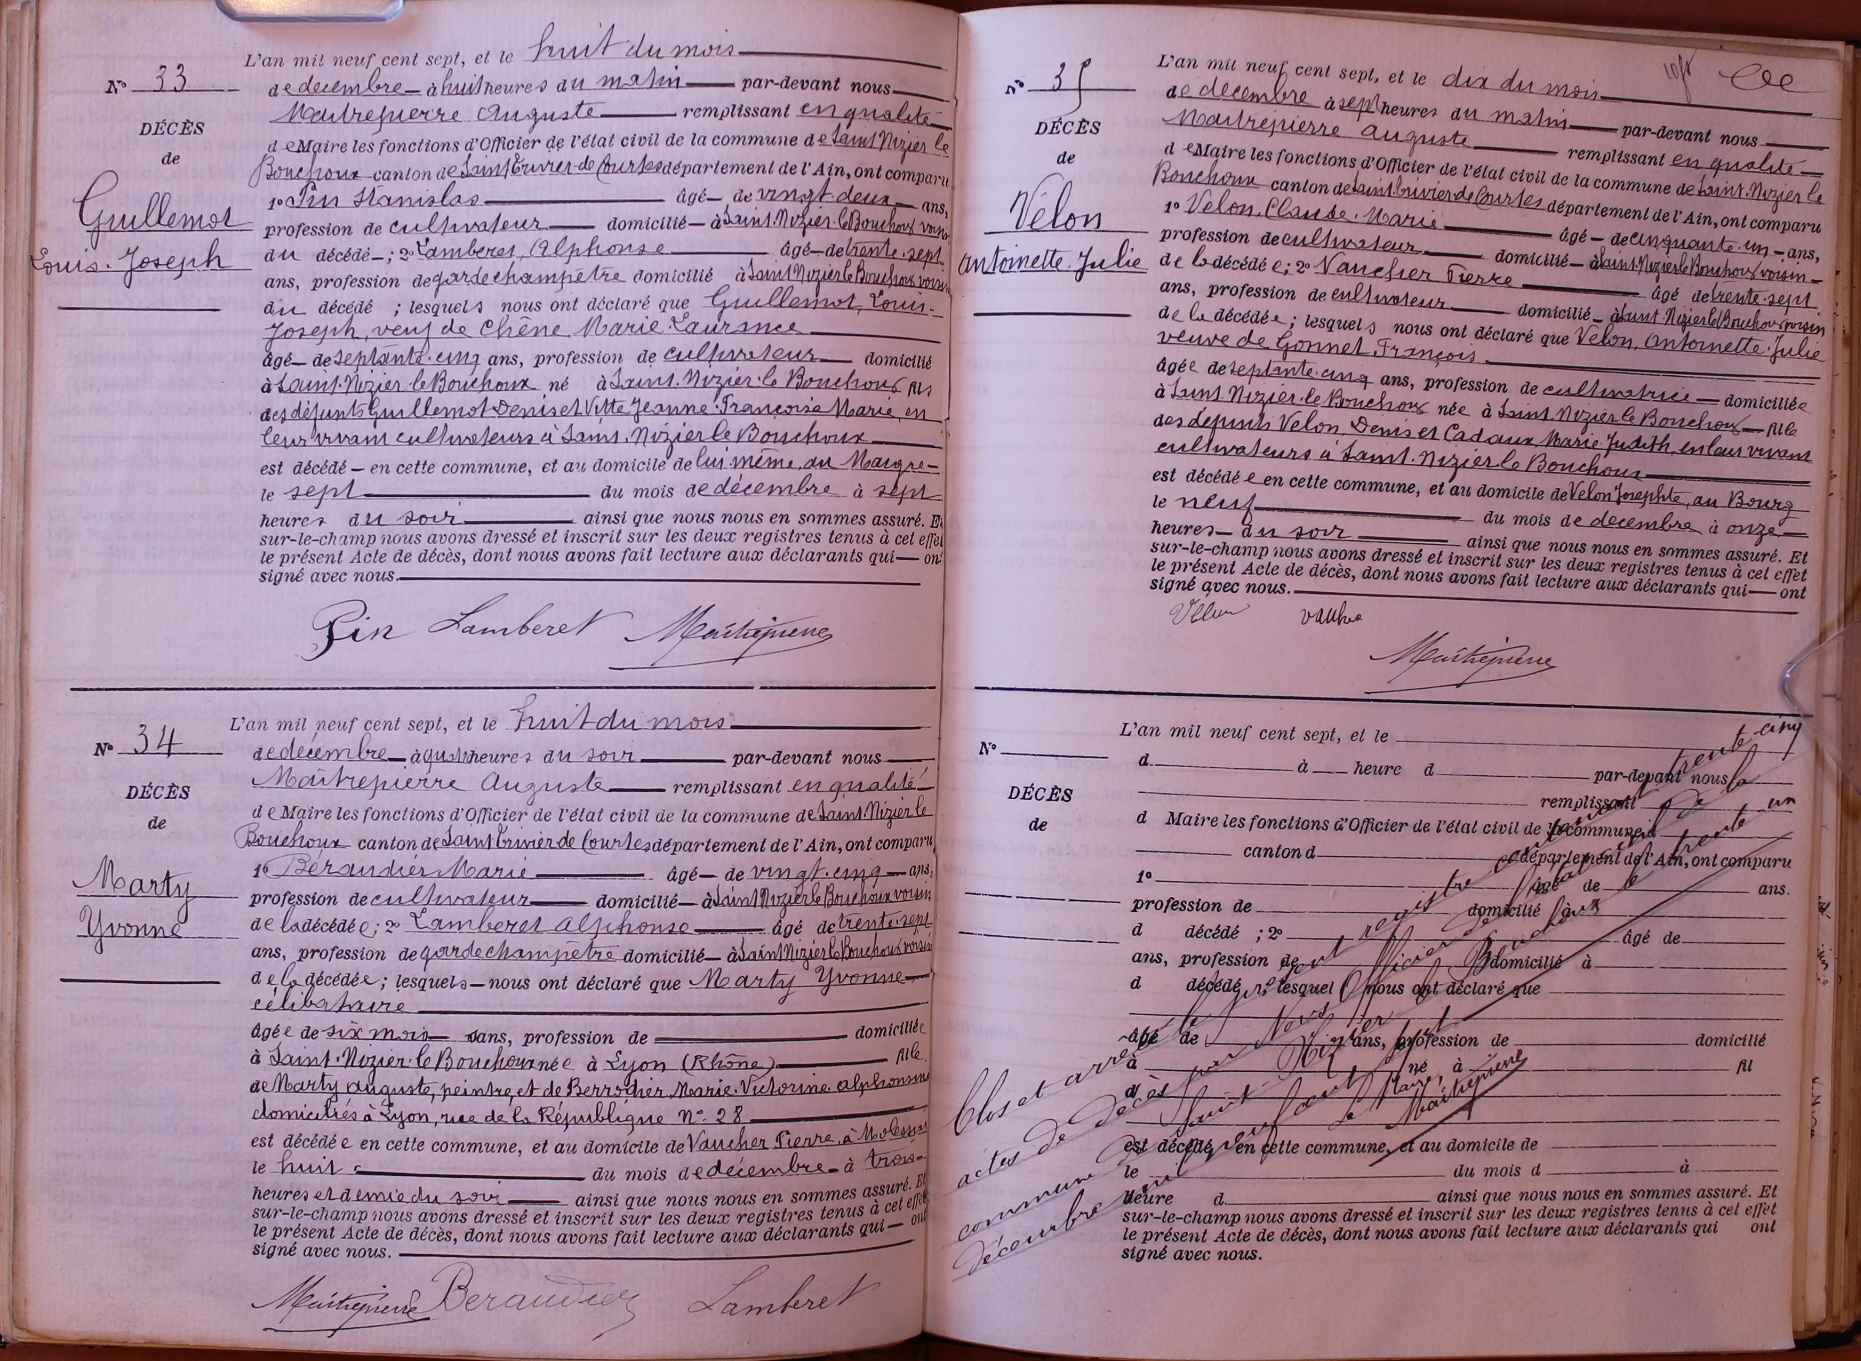 L'an mil neuf cent sept, et le huit du mois
N° 33
de decembre à huit heures du matin par-devant nous
Maitrepierre Auguste remplissant en qualité
DÉCÈS
de Maire les fonctions d'Officier de l'état civil de la commune de Saint Nizier le
de
Bouchoux canton de Saint Trivier de Courtes département de l'Ain, ont comparu
1° Pin Stanislas âgé de vingt deux ans,
Guillemot
profession de cultivateur domicilié à Saint Nizier le Bouchoux voisin
du décédé ; 2° Lamberet, Alphonse âgé de trente sept
Louis Joseph
ans, profession de garde champêtre domicilié à Saint Nizier le Bouchoux voisin
du décédé ; lesquels nous ont déclaré que Guillemot, Louis-
Joseph, veuf de Chêne Marie Laurence
âgé de septante cinq ans, profession de cultivateur domicilié
à Saint Nizier le Bouchoux né à Saint Nizier le Bouchoux fils
des défunts Guillemot Denis et Vitte Jeanne Françoise Marie, en
leur vivant cultivateurs à Saint Nizier le Bouchoux
est décédé en cette commune, et au domicile de lui même, au Maigre
le sept du mois de décembre à sept
heures du soir ainsi que nous nous en sommes assuré. Et
sur-le-champ nous avons dressé et inscrit sur les deux registres tenus à cet effet
le présent Acte de décès, dont nous avons fait lecture aux déclarants qui ont
signé avec nous.
Pin Lamberet Maitrepierre
L'an mil neuf cent sept, et le huit du mois
N° 34
de décembre à quatre heures du soir par-devant nous
Maitrepierre Auguste remplissant en qualité
DÉCÈS
de Maire les fonctions d'Officier de l'état civil de la commune de Saint Nizier le
de
Bouchoux canton de Saint Trivier de Courtes département de l'Ain, ont comparu
1° Béraudier Marie âgé de vingt cinq ans,
Marty
profession de cultivateur domicilié à Saint Nizier le Bouchoux voisin
Yvonne
de la décédée ; 2° Lamberet Alphonse âgé de trente sept
ans, profession de garde champêtre domicilié à Saint Nizier le Bouchoux voisin
de la décédée ; lesquels nous ont déclaré que Marty Yvonne
célibataire
âgée de six mois sans, profession de domiciliée
à Saint Nizier le Bouchoux née à Lyon (Rhône) fille
de Marty Auguste, peintre, et de Marie Victorine Alphonsine
domiciliés à Lyon, rue de la République N° 28
est décédée en cette commune, et au domicile de Vaucher Pierre, à
le huit du mois de décembre à trois
heures et demie du soir ainsi que nous nous en sommes assuré. Et
sur-le-champ nous avons dressé et inscrit sur les deux registres tenus à cet effet
le présent Acte de décès, dont nous avons fait lecture aux déclarants qui ont
signé avec nous.
Maitrepierre Beraudier Lamberet
L'an mil neuf cent sept, et le dix du mois
N° 35
de decembre à sept heures du matin par-devant nous
Maitrepierre Auguste remplissant en qualité
DÉCÈS
de Maire les fonctions d'Officier de l'état civil de la commune de Saint Nizier le
de
Bouchoux canton de Saint Trivier de Courtes département de l'Ain, ont comparu
1° Velon, Claude Marie âgé de cinquante un ans,
Vélon
profession de cultivateur domicilié à Saint Nizier le Bouchoux voisin
Antoinette Julie
de la décédée ; 2° Vaucher Pierre âgé de trente sept
ans, profession de cultivateur domicilié à Saint Nizier le Bouchoux voisin
de la décédée ; lesquels nous ont déclaré que Velon, Antoinette Julie
veuve de Gonnet, François
âgée de septante cinq ans, profession de cultivatrice domiciliée
à Saint Nizier le Bouchoux née à Saint Nizier le Bouchoux fille
des défunts Velon, Denis et Cadaux Marie Judith, en leur vivant
cultivateurs à Saint Nizier le Bouchoux
est décédée en cette commune, et au domicile de Velon Josephte, au Bourg
le neuf du mois de decembre à onze
heures du soir ainsi que nous nous en sommes assuré. Et
sur-le-champ nous avons dressé et inscrit sur les deux registres tenus à cet effet
le présent Acte de décès, dont nous avons fait lecture aux déclarants qui ont
signé avec nous.
Vélon Maitrepierre
L'an mil neuf cent sept, et le
N°
d à heure d par-devant nous
remplissant
DÉCÈS
d Maire les fonctions d'Officier de l'état civil de la commune d
de
canton d département de l'Ain, ont comparu
1° âgé de ans.
profession de domicilié à
d décédé ; 2° âgé de
ans, profession de domicilié à
d décédé ; lesquel nous ont déclaré que
âgé de ans, profession de domicilié
à né à fil
d
est décédé en cette commune, et au domicile de
le du mois d à
heure d ainsi que nous nous en sommes assuré. Et
sur-le-champ nous avons dressé et inscrit sur les deux registres tenus à cet effet
le présent Acte de décès, dont nous avons fait lecture aux déclarants qui ont
signé avec nous.
Clos et arrêté le présent registre contenant trente cinq
actes de décès par Nous Officier de l'état civil de la
commune de Saint Nizier le Bouchoux le trente un
décembre mil neuf cent sept
Le Maire,
Maitrepierre